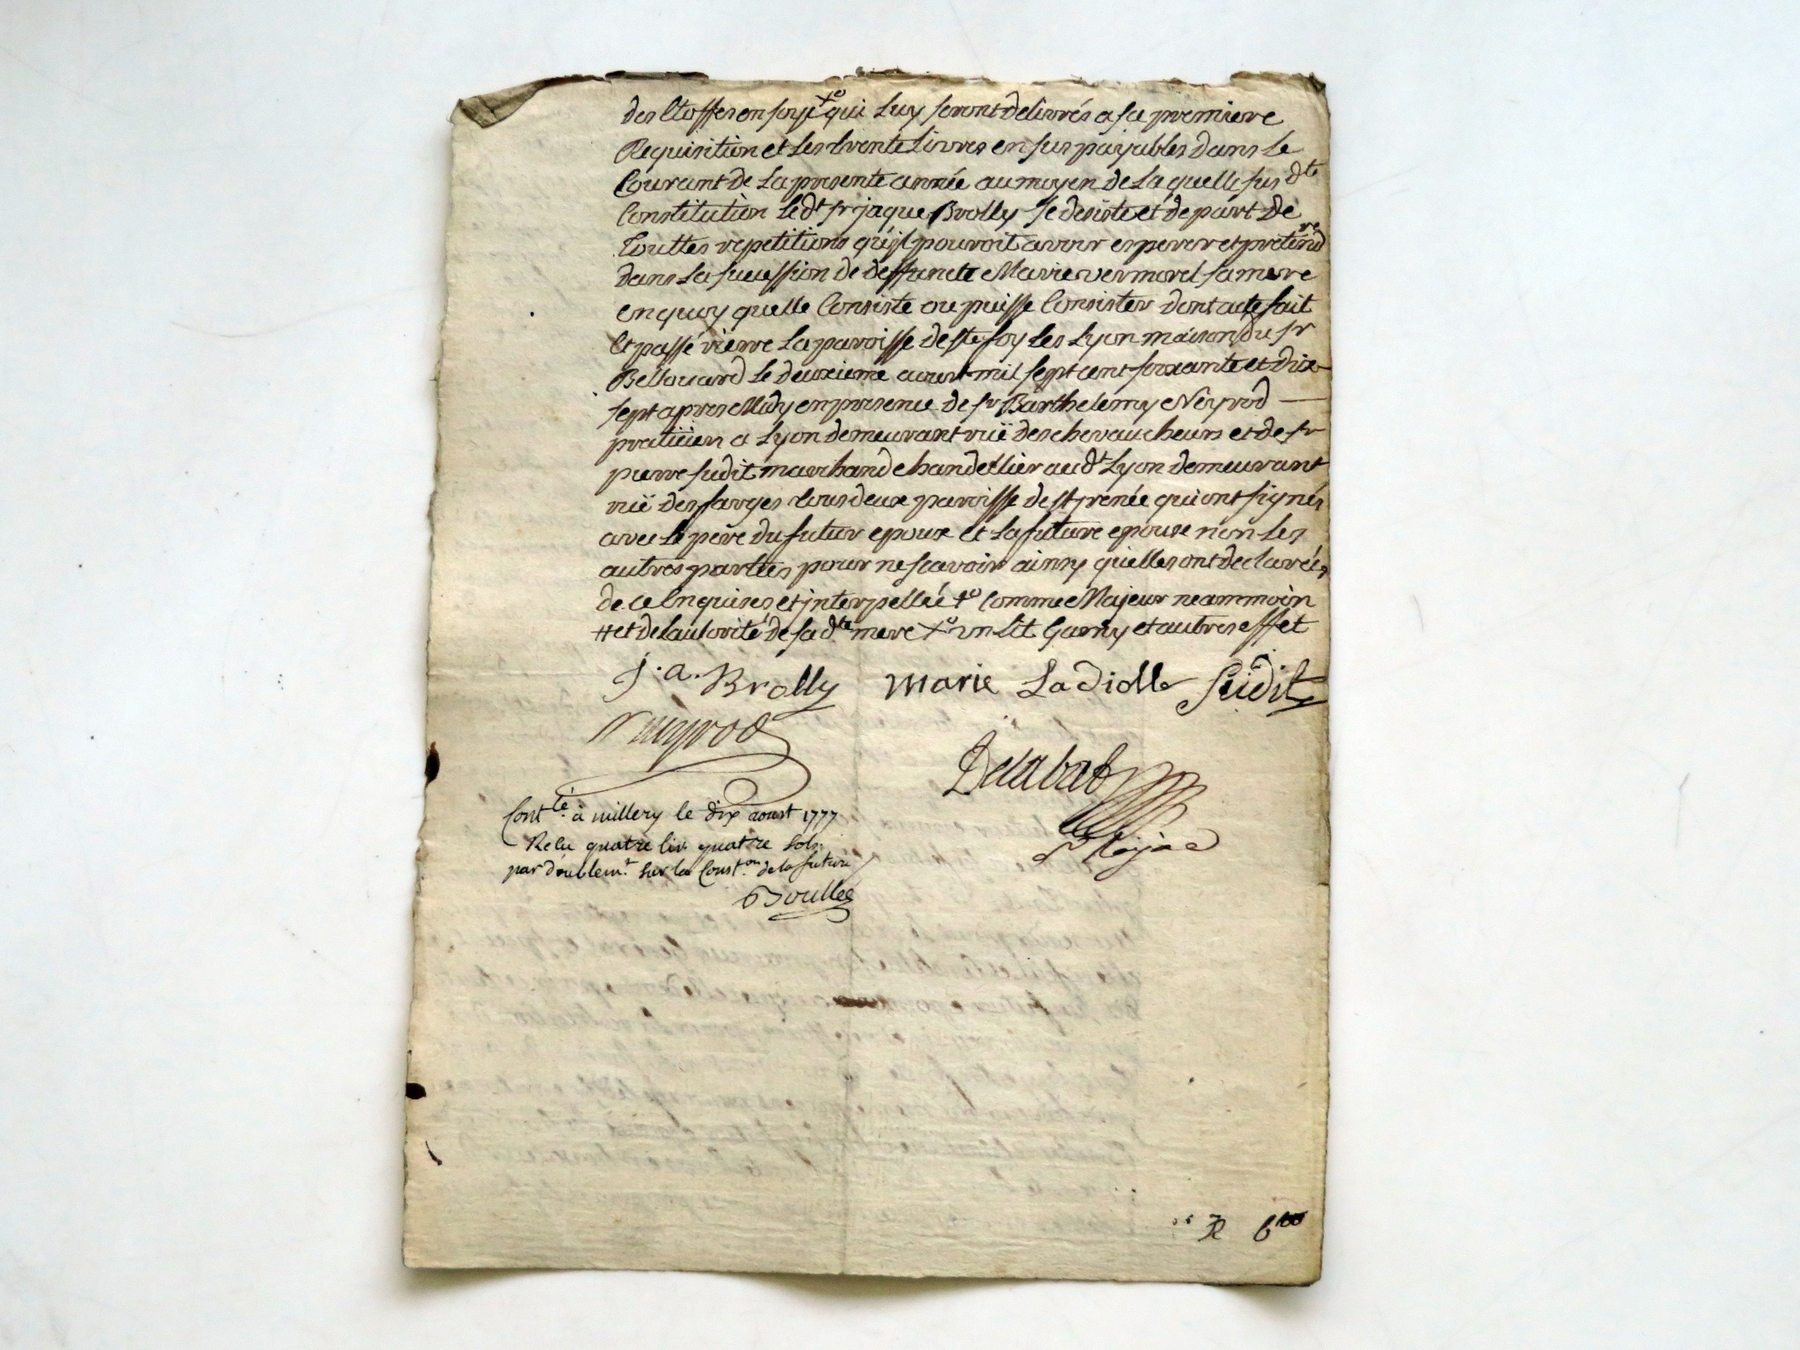 des Etoffes en soye +° qui Luy seront delivrés a sa premiere
Requisition et Les trente Livres en sus payables dans Le
Courant de La presente année au moyen de La quelle sus dte
Constitution Le dt sr jaque Brolly se desiste et depart de
Touttes repetitions qu'jl pouvoit avoir esperer et pretendre
dans La sucession de deffuncte Marie vermorel sa mere
en quoy quelle Consiste ou puisse Consister dont acte fait
Et passé rierre La paroisse de ste foy Les Lyon maison du sr
Bellouard Le deuxieme aoust mil sept cent soixante et dix
sept apres Midy en presence de sr Barthelemy Neyrod
praticien a Lyon demeurant ruë des chevaucheurs et de sr
pierre sudit marchand chandellier aud Lyon demeurant
ruë des farges tous deux paroisse de st jrenée qui ont signés
avec Le pere du futur epoux et La future epouse non Les
autres parties pour ne scavoir ainsy quelles ont declarées
de ce Enquises et jnterpellée +° Comme Majeur neammoin
# et de Lautorité de sa dte mere X° un Lit Garny et autres effet
j. a. Brolly Marie Ladiolle Sudit
Neyrod
Delabat
Contlé à millery le dix aoust 1777
Reçu quatre liv quatre sols
par doublemt sur la Conston de la future
Boullee